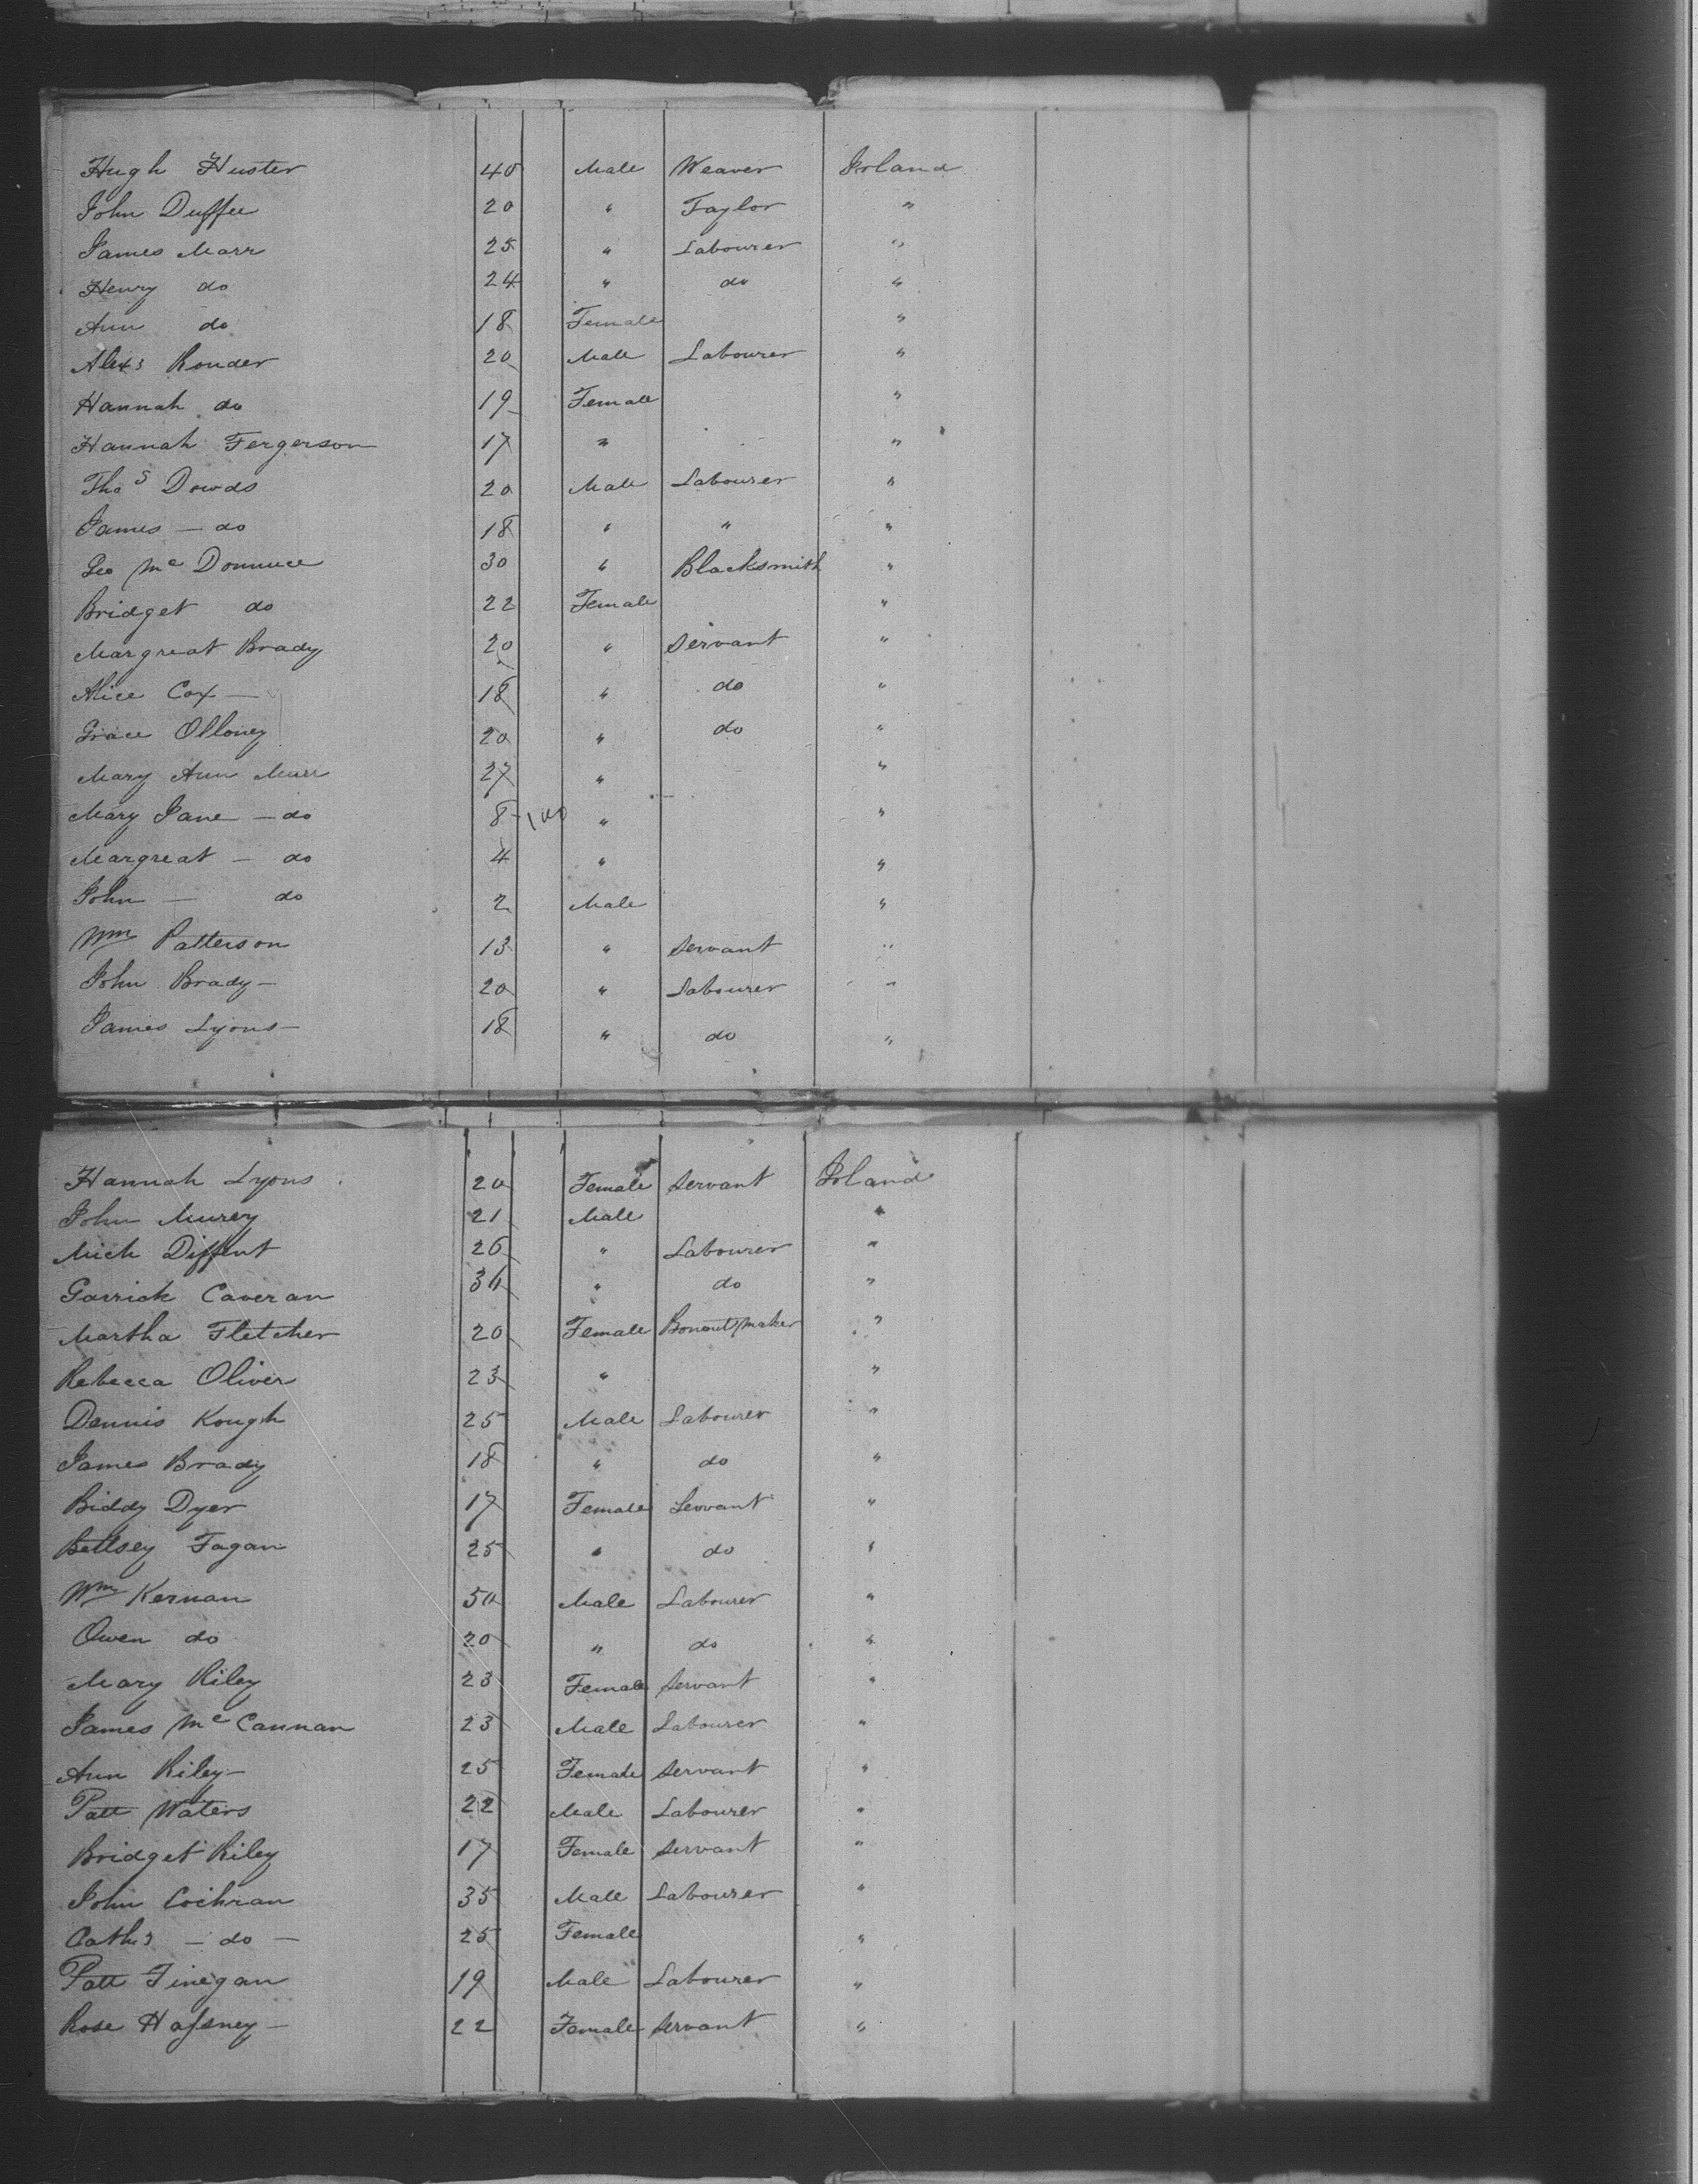 Hugh Huster 40 Male Weaver Irland
John Duffee 20 " Taylor "
James Marr 25 " Labourer "
Henry do 24 " do "
Ann do 18 Female "
Alexr Ronder 20 Male Labourer "
Hannah do 19 Female "
Hannah Fergerson 17 " "
Thos Dowds 20 Male Labourer "
James — do 18 " " "
Geo Mc 30 " Blacksmith "
Bridget do 22 Female "
Margreat Brady 20 " Servant "
Alice Cox — 18 " do "
Grace Olloney 20 " do "
Mary Ann Marr 27 " "
Mary Jane — do 8 " "
Margreat — do 4 " "
John — do 2 Male "
Wm Patterson 13 " Servant "
John Brady — 20 " Labourer "
James Lyons — 18 " do "
Hannah Lyons 20 Female Servant Irland
John Murey 21 Male "
Mich Diffent 26 " Labourer "
Garrick Caveran 36 " do "
Martha Fletcher 20 Female Bonnet maker "
Rebecca Oliver 23 " "
Dennis Kough 25 Male Labourer "
James Brady 18 " do "
Biddy Dyer 17 Female Servant "
Bettsey Fagan 25 " do "
Wm Kernan 50 Male Labourer "
Owen do 20 " do "
Mary Riley 23 Female Servant "
James Mc Cannan 23 Male Labourer "
Ann Riley — 25 Female Servant "
Patt Waters 22 Male Labourer "
Bridget Riley 17 Female Servant "
John Cochran 35 Male Labourer "
Cathr — do — 25 Female "
Patt Finegan 19 Male Labourer "
Rose Hafsney — 22 Female Servant "